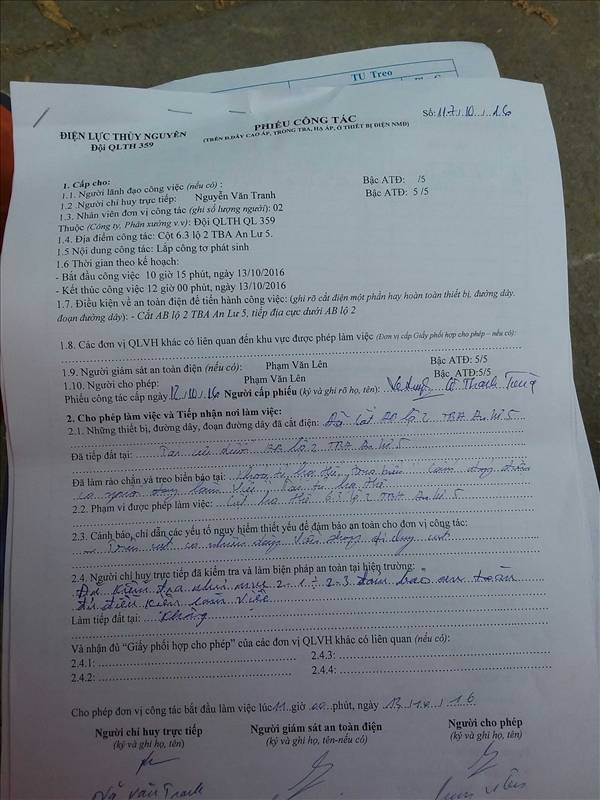 TU Treo
ĐIỆN LỰC THỦY NGUYÊN
Đội QLTH 359
PHIẾU CÔNG TÁC
(TRÊN Đ.DÂY CAO ÁP, TRONG TBA, HẠ ÁP, Ở THIẾT BỊ ĐIỆN NMĐ)
Số: 117/10/16
1. Cấp cho:
1.1. Người lãnh đạo công việc (nếu có) : Bậc ATĐ: /5
1.2 .Người chỉ huy trực tiếp: Nguyễn Văn Tranh Bậc ATĐ: 5 /5
1.3. Nhân viên đơn vị công tác (ghi số lượng người): 02
Thuộc (Công ty, Phân xưởng v.v): Đội QLTH QL 359
1.4. Địa điểm công tác: Cột 6.3 lộ 2 TBA An Lư 5.
1.5 Nội dung công tác: Lắp công tơ phát sinh
1.6 Thời gian theo kế hoạch:
- Bắt đầu công việc 10 giờ 15 phút, ngày 13/10/2016
- Kết thúc công việc 12 giờ 00 phút, ngày 13/10/2016
1.7. Điều kiện về an toàn điện để tiến hành công việc: (ghi rõ cắt điện một phần hay hoàn toàn thiết bị, đường dây,
đoạn đường dây): - Cắt AB lộ 2 TBA An Lư 5, tiếp địa cực dưới AB lộ 2
1.8. Các đơn vị QLVH khác có liên quan đến khu vực được phép làm việc (Đơn vị cấp Giấy phối hợp cho phép – nếu có):
1.9. Người giám sát an toàn điện (nếu có): Phạm Văn Lên Bậc ATĐ: 5/5
1.10. Người cho phép: Phạm Văn Lên Bậc ATĐ:5/5
Phiếu công tác cấp ngày 12/10/16 Người cấp phiếu (ký và ghi rõ họ, tên):
2. Cho phép làm việc và Tiếp nhận nơi làm việc:
2.1. Những thiết bị, đường dây, đoạn đường dây đã cắt điện: Đã cắt AB lộ 2 TBA An Lư 5
Đã tiếp đất tại: dưới AB lộ 2 TBA An Lư 5
Đã làm rào chắn và treo biển báo tại: Khóa tủ hạ thế, treo biển Cấm đóng điện
có người đang làm việc tủ hạ thế
2.2. Phạm vi được phép làm việc: Cột hạ thế 6.3 lộ 2 TBA An Lư 5
2.3. Cảnh báo, chỉ dẫn các yếu tố nguy hiểm thiết yếu để đảm bảo an toàn cho đơn vị công tác:
2.4. Người chỉ huy trực tiếp đã kiểm tra và làm biện pháp an toàn tại hiện trường:
Đã kiểm tra như mục 2.1 ÷ 2.3 đảm bảo an toàn
đủ điều kiện làm việc
Làm tiếp đất tại: Không
Và nhận đủ “Giấy phối hợp cho phép” của các đơn vị QLVH khác có liên quan (nếu có):
2.4.1: 2.4.3:
2.4.2: 2.4.4:
Cho phép đơn vị công tác bắt đầu làm việc lúc 11 giờ 00 phút, ngày 13/10/16
Người chỉ huy trực tiếp Người giám sát an toàn điện Người cho phép
(ký và ghi họ, tên) (ký và ghi họ, tên-nếu có) (ký và ghi họ, tên)